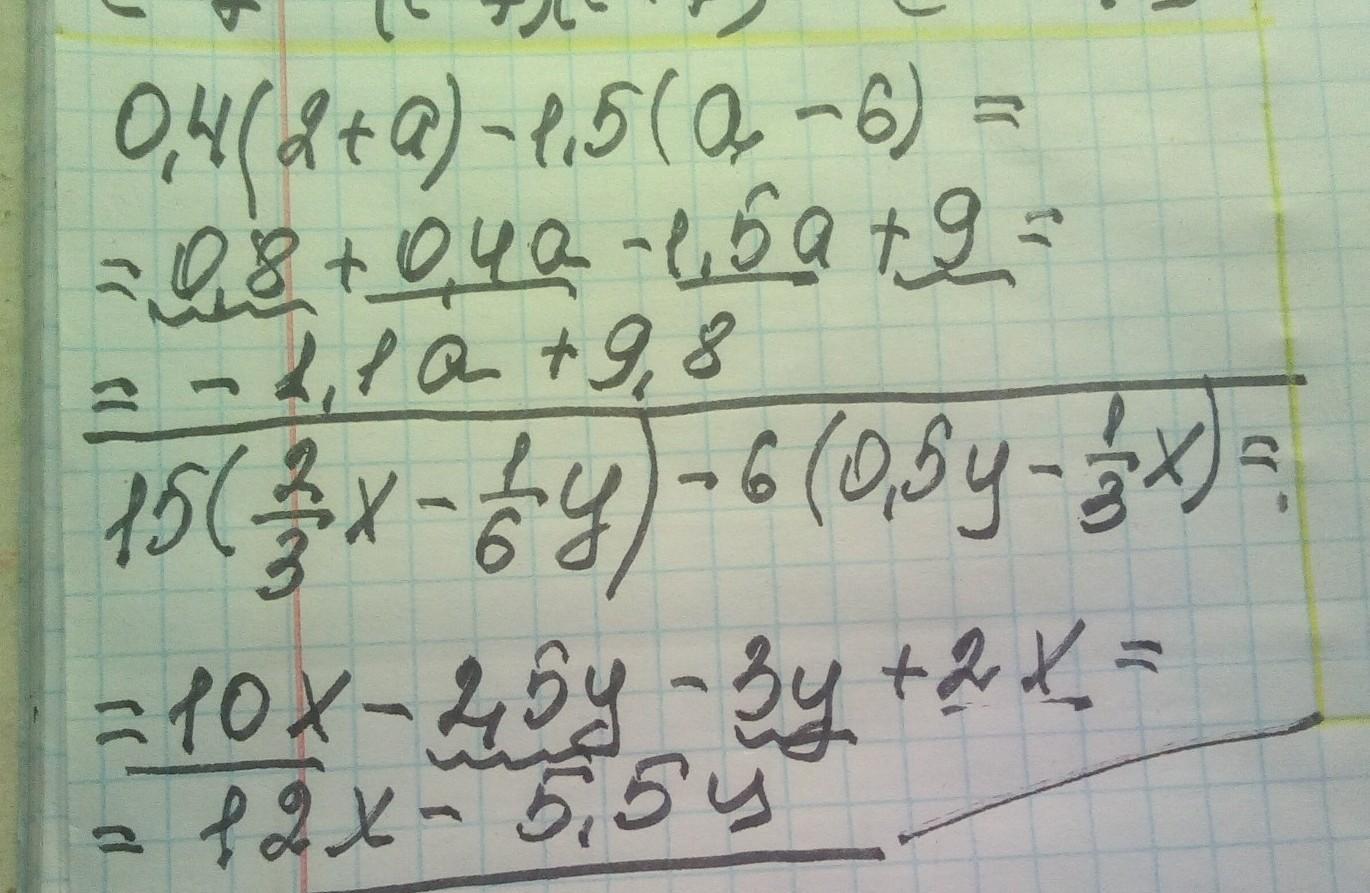 0,4(2+a)-1,5(a-6)=
=0,8+0,4a-1,5a+9=
=-1,1a+9,8
15(2/3x-1/6y)-6(0,5y-1/3x)=
=10x-2,5y-3y+2x=
=12x-5,5y